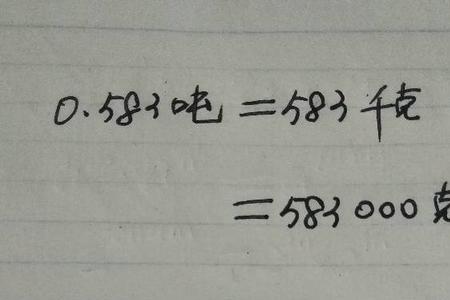 0.583吨=583千克
=583000克